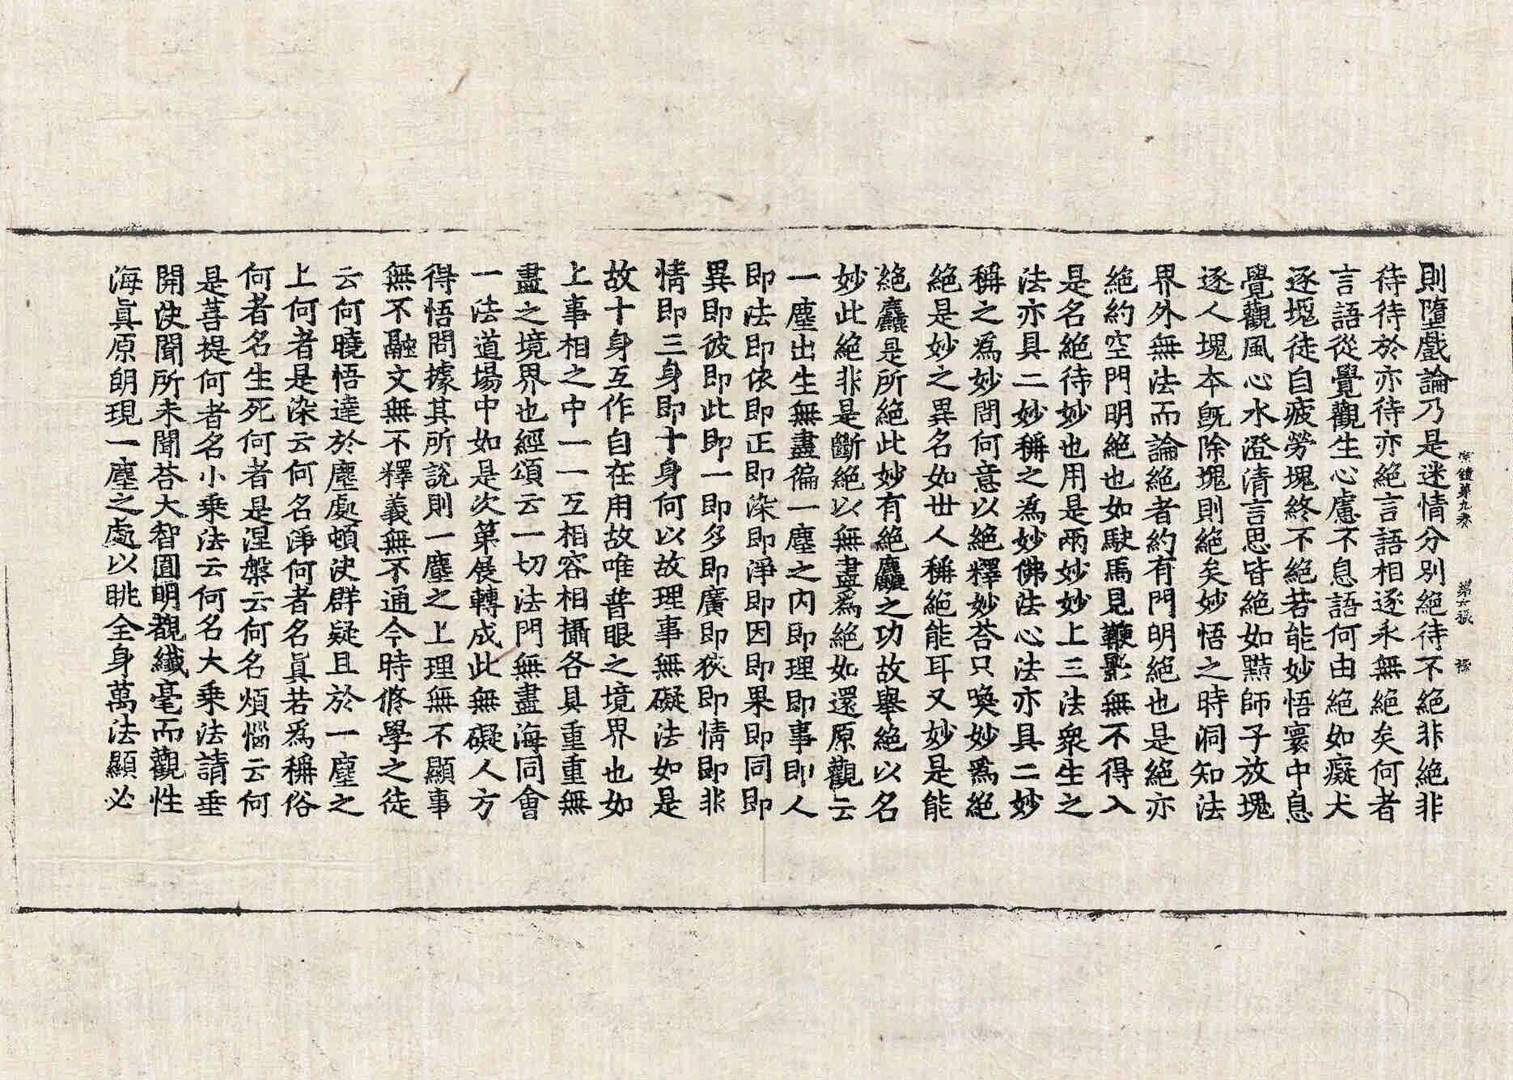 則墮戲論乃是迷情分別絕待不絕非絕非
宗鏡第九卷 第六張 稼
待待於亦待亦絕言語相逐永無絕矣何者
言語從覺觀生心慮不息語何由絕如癡犬
逐塊徒自疲勞塊終不絕若能妙悟寰中息
覺觀風心水澄清言思皆絕如黠師子放塊
逐人塊本旣除塊則絕矣妙悟之時洞知法
界外無法而論絕者約有門明絕也是絕亦
絕約空門明絕也如駛馬見鞭影無不得入
是名絕待妙也用是兩妙妙上三法衆生之
法亦具二妙稱之爲妙佛法心法亦具二妙
稱之爲妙問何意以絕釋妙荅只喚妙爲絕
絕是妙之異名如世人稱絕能耳又妙是能
絕麤是所絕此妙有絕麤之功故舉絕以名
妙此絕非是斷絕以無盡爲絕如還原觀云
一塵出生無盡徧一塵之內即理即事即人
即法即依即正即染即淨即因即果即同即
異即彼即此即一即多即廣即狹即情即非
情即三身即十身何以故理事無礙法如是
故十身互作自在用故唯普眼之境界也如
上事相之中一一互相容相攝各具重重無
盡之境界也經頌云一切法門無盡海同會
一法道場中如是次第展轉成此無礙人方
得悟問據其所說則一塵之上理無不顯事
無不融文無不釋義無不通今時修學之徒
云何曉悟達於塵處頓決群疑且於一塵之
上何者是染云何名淨何者名眞若爲稱俗
何者名生死何者是涅槃云何名煩惱云何
是菩提何者名小乘法云何名大乘法請垂
開決聞所未聞荅大智圓明覩纖毫而觀性
海眞原朗現一塵之處以眺全身萬法顯必